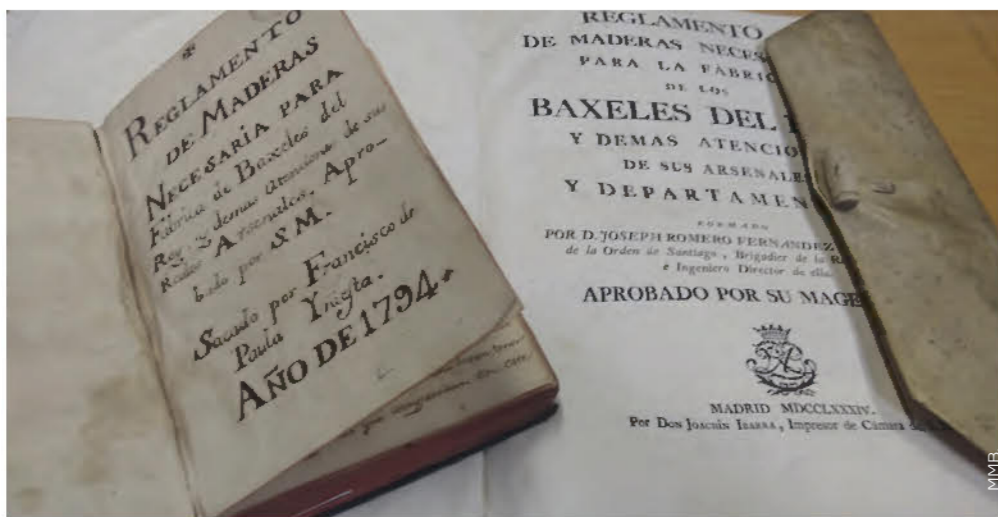 REGLAMENTO
DE MADERAS
NECESARIA PARA
Fabrica de Baxeles del
Rey. Y demas atenciones de sus
Reales Arsenales. Apro-
bado por S.M.
Sacado por Francisco de
Paula Ynigta.
AÑO DE 1794
REGLAMENTO
DE MADERAS
PARA LA
DE LOS
BAXELES DEL
Y DEMAS
DE SUS ARSENALES
Y
FORMADO
POR D. JOSEPH ROMERO FERNANDEZ
de la Orden de Santiago, Brigadier de la
e Ingeniero Director de ella.
APROBADO POR SU
MADRID MDCCLXXXIV.
Por Don Joachîn Ibarra, Impresor de Cámara
MMB